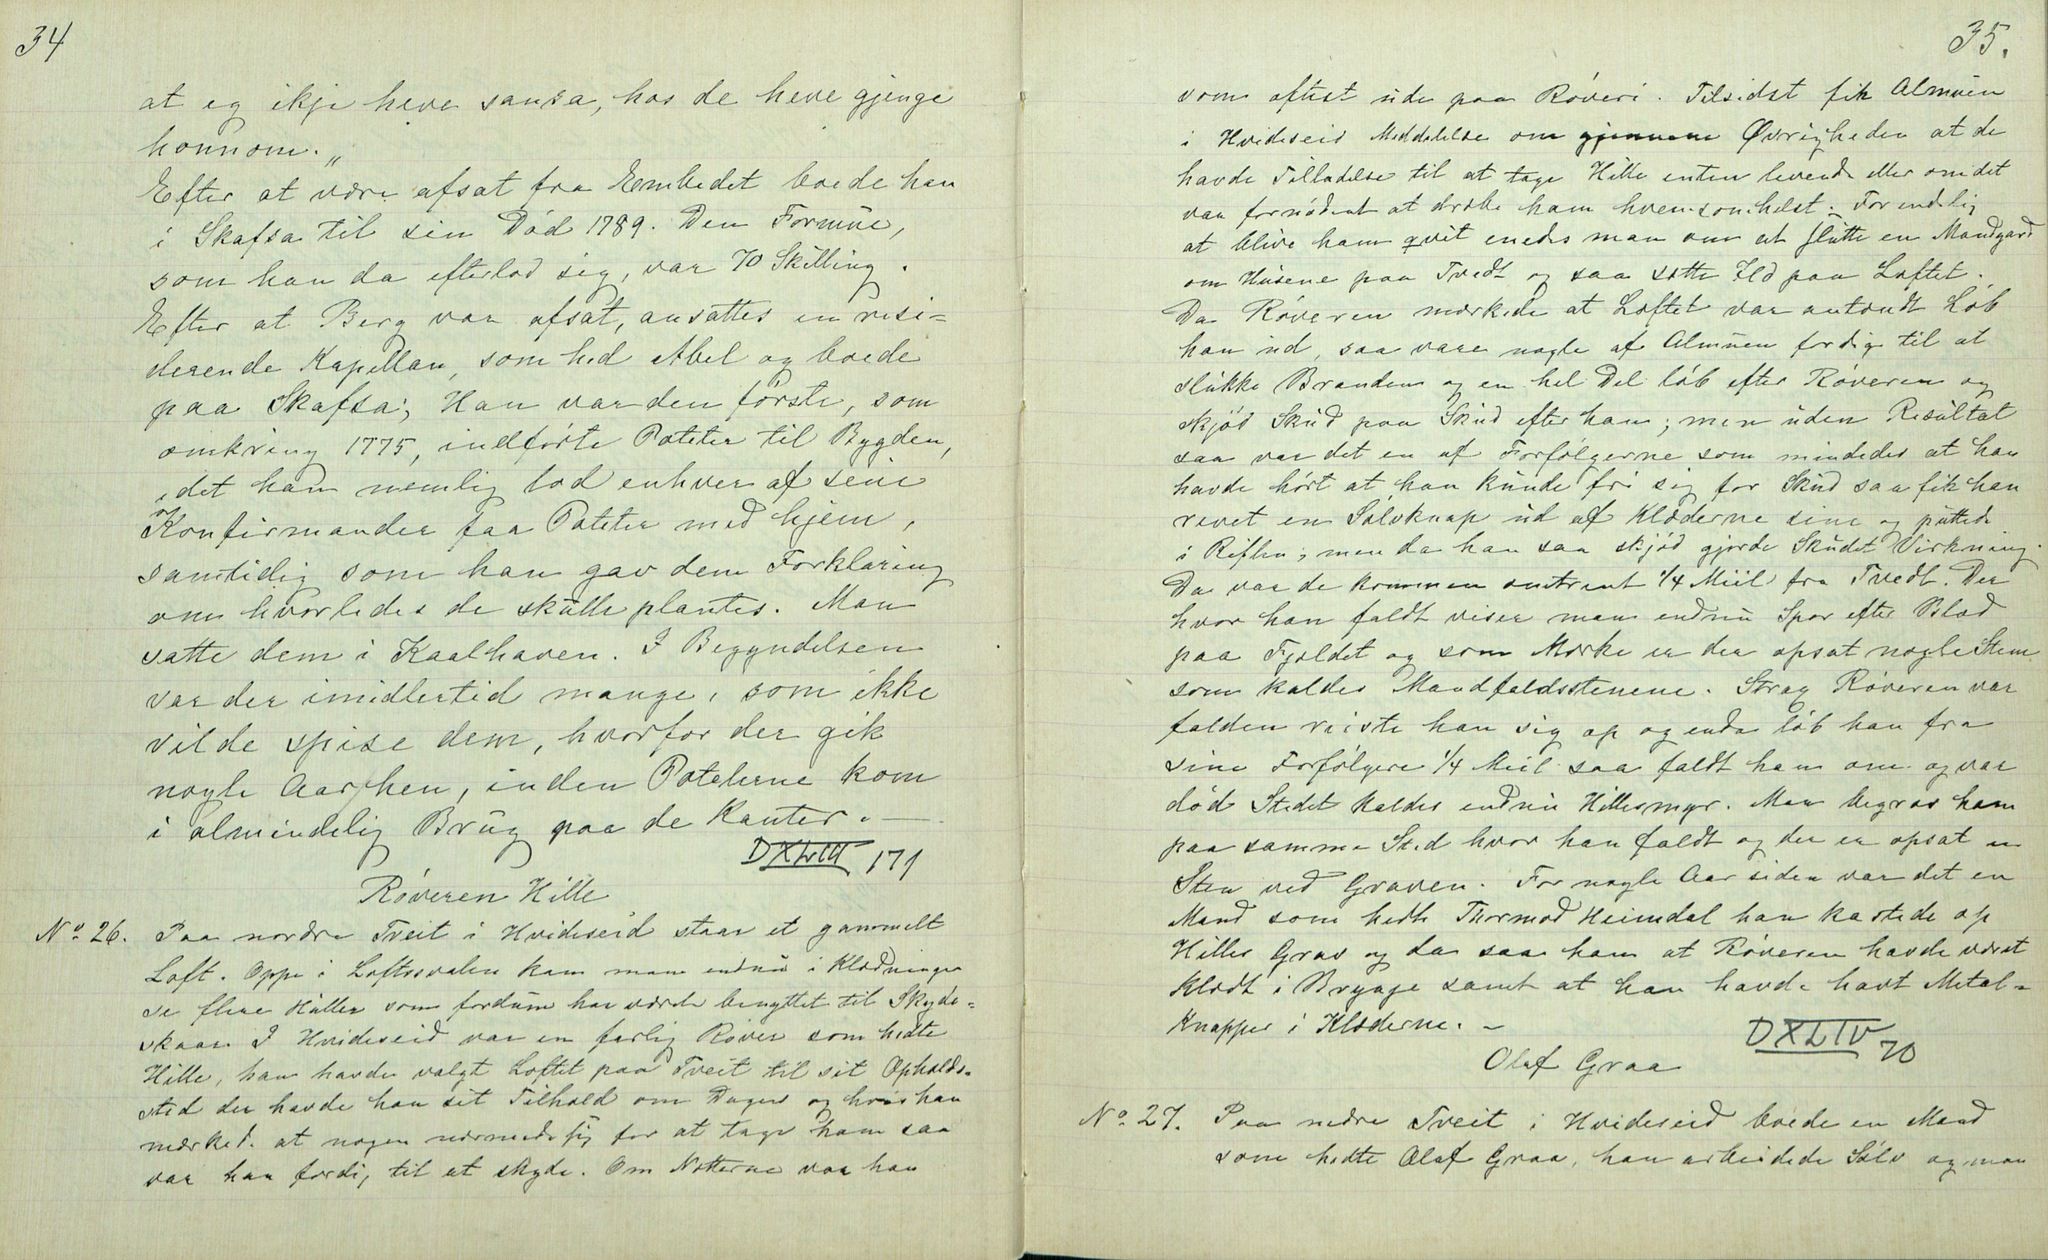 34
at eg ikje heve sansa, hos de heve gjenge
honnom."
Efter at være afsat fra Embedet boede han
i Skafsa til sin Død 1789. Den Formue,
som han da efterlod sig, var 70 Skilling.
Efter at Berg var afsat, ansattes en resi-
derende Kapellan, som hed Abel og boede
paa Skafsa; Han var den første, som
omkring 1775, indførte Poteter til Bygden,
idet han nemlig lod enhver af sine
Konfirmander faa Poteter med hjem,
samtidig som han gav dem Forklaring
om hvorledes de skulle plantes. Man
satte dem i Kaalhaven. I Begyndelsen
var der imidlertid mange, som ikke
vilde spise dem, hvorfor der gik
nogle Aar hen, inden Poteterne kom
i almindelig Brug paa de Kanter. —
DXLIII 171
Røveren Hille
No 26. Paa nordre Tveit i Hvideseid staar et gammelt
Loft. Oppe i Loftssvalen kan man endnu i Klædningen
se flere Huller som fordum har været benyttet til Skyde-
skaar. I Hvideseid var en farlig Røver som hedte
Hille, han havde valgt Loftet paa Tveit til sit Opholds-
sted der havde han sit Tilhold om Dagen og hvis han
mærked at nogen nærmede sig for at tage ham saa
var han færdig til at skyde. Om Nætterne var han
35.
som oftest ude paa Røveri. Tilsidst fik Almuen
i Hvideseid Meddelelse om gjennem Øvrigheden at de
havde Tilladelse til at tage Hille enten levende eller om det
var fornødent at dræbe ham hvemsomhelst. For endelig
at blive ham qvit enedes man om at slutte en Mandgard
om Husene paa Tvedt og saa sætte Ild paa Loftet.
Da Røveren mærkede at Loftet var antændt Løb
han ud, saa vare nogle af Almuen færdig til at
slukke Branden og en hel Del løb efter Røveren og
skjød Skud paa Skud efter ham; men uden Resultat
saa var det en af Forfølgerne som mindedes at han
havde hørt at han kunde fri sig for Skud saa fik han
revet en Sølvknap ud af Klæderne sine og puttede
i Riflen; men da han saa skjød gjorde Skudet Virkning.
Da var de kommen omtrent 1/4 Miil fra Tvedt. Der
hvor han faldt viser man endnu Spor efter Blod
paa Fjeldet og som Mærke er der opsat nogle Stene
som kaldes Mandfaldsstenene. Strax Røveren var
falden reiste han sig op og enda løb han fra
sine Forfølgere 1/4 Miil saa faldt han om og var
død Stedet kaldes endnu Hillesmyr. Man begrov ham
paa samme Sted hvor han faldt og der er opsat en
Sten ved Graven. For nogle Aar siden var det en
Mand som hedte Thormod Heimdal han kastede op
Hilles Grav og da saa ham at Røveren havde været
klædt i Brynje samt at han havde havt Metal-
Knapper i Klæderne. —
DXLIV 70
Olaf Graa
No 27. Paa nedre Tveit i Hvideseid boede en Mand
som hedte Olaf Graa, han arbeidede Sølv og man